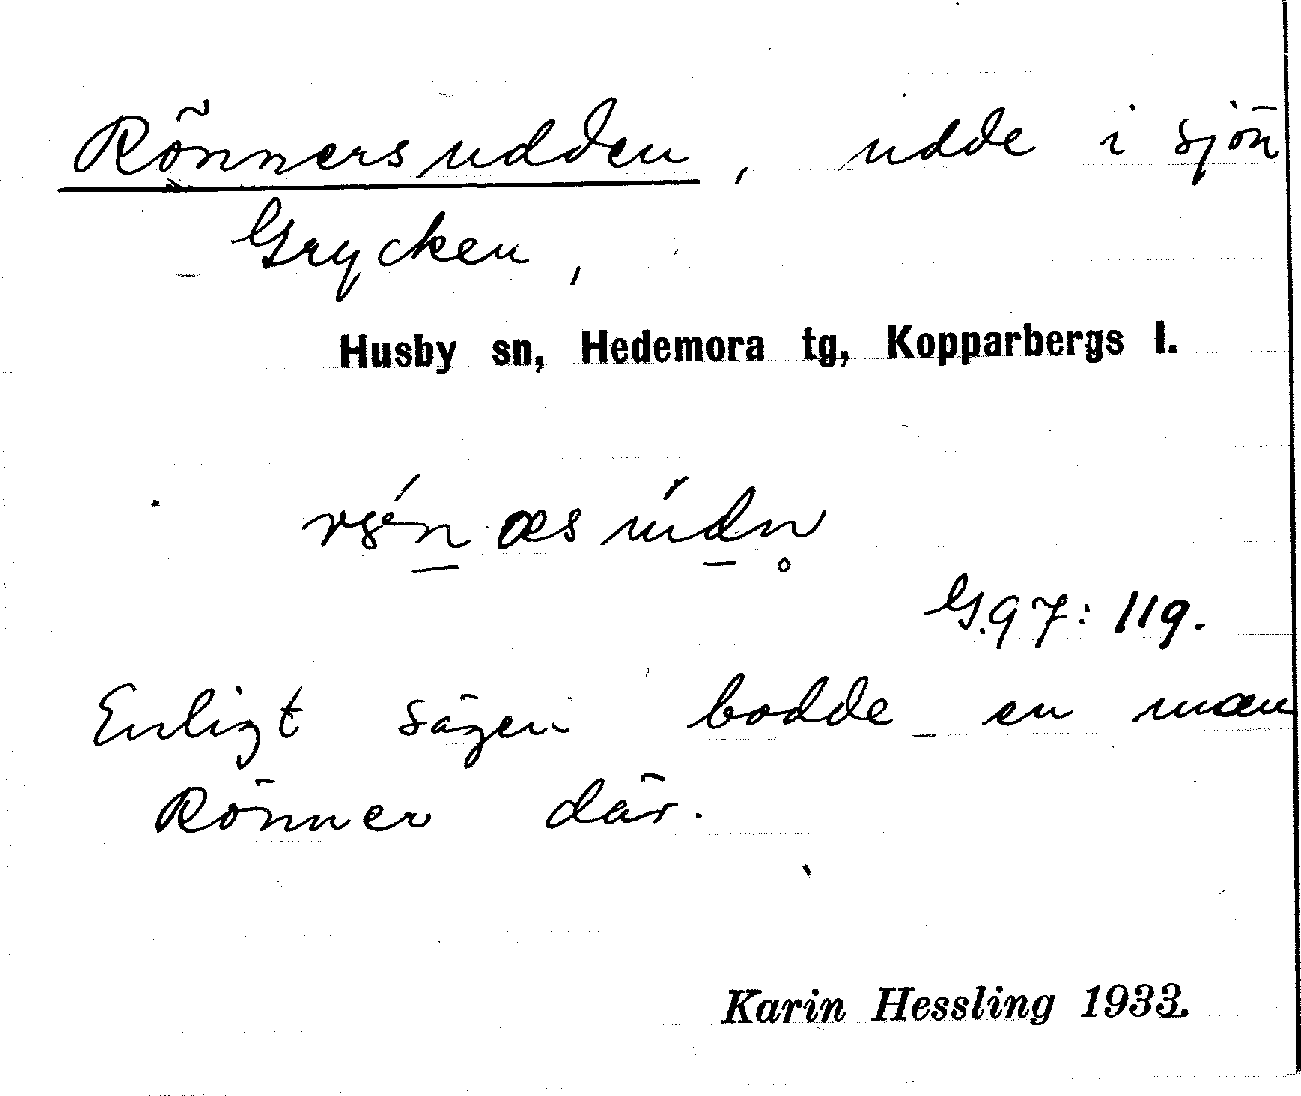 Rönnersudden, udde i sjön
Grycken,
Husby sn, Hedemora tg, Kopparbergs l.
G.97: 119.
Enligt sägen bodde en man
Rönner där.
Karin Hessling 1933.